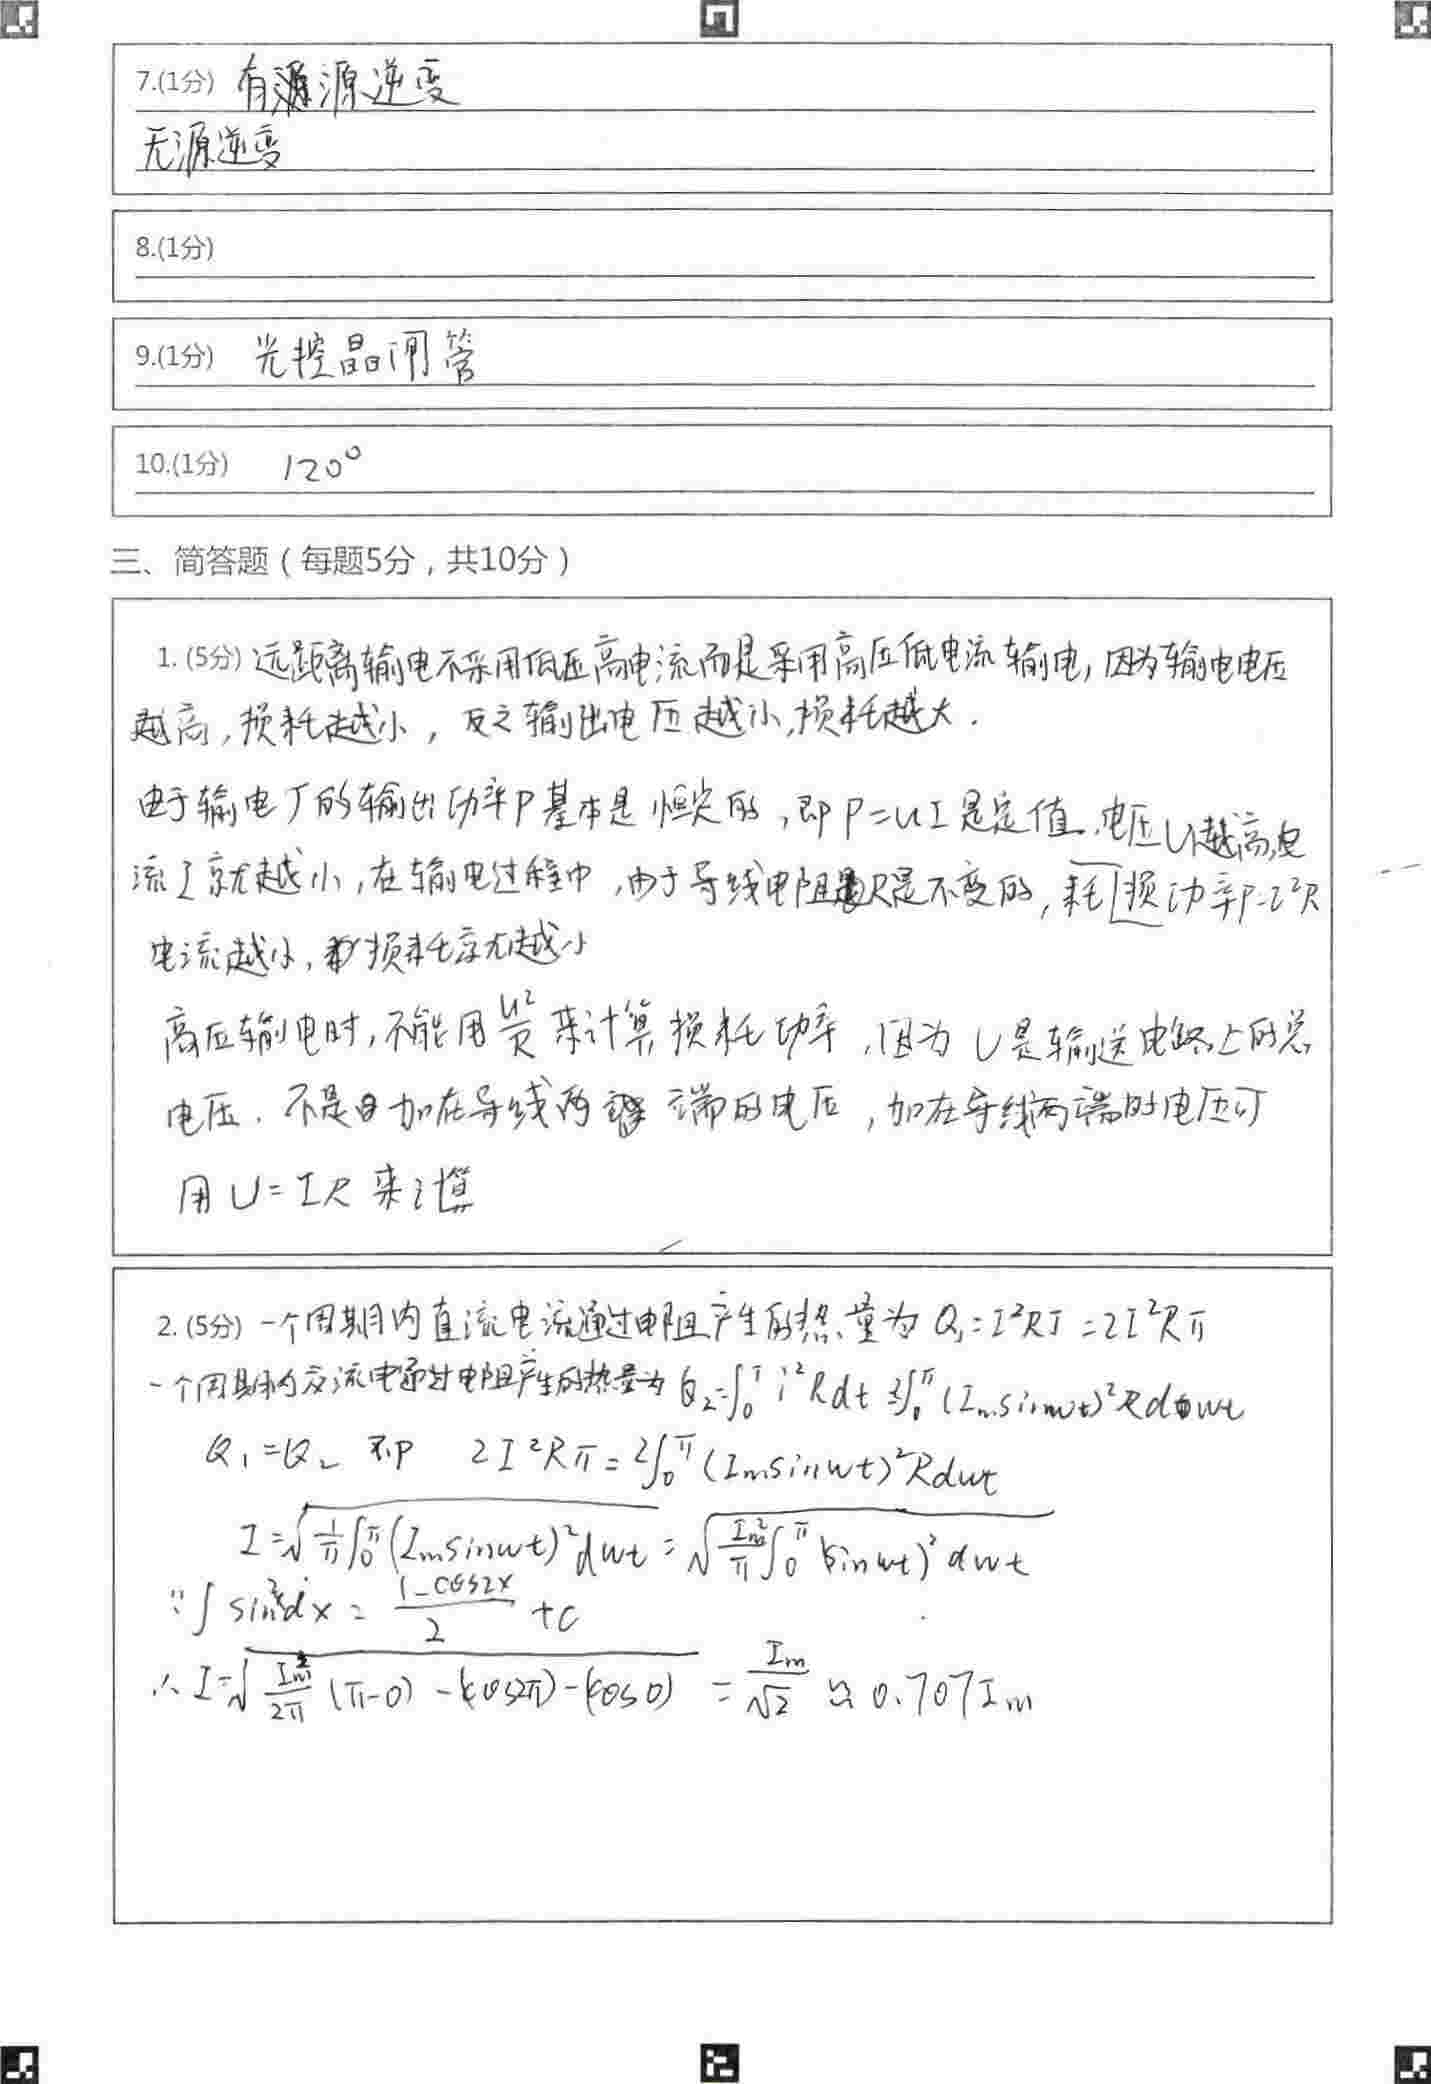 7.(1分) 有源源逆变
无源逆变
8.(1分)
9.(1分) 光控晶闸管
10.(1分) 120°
三、简答题（每题5分，共10分）
1. (5分) 远距离输电不采用低压高电流而是采用高压低电流输电，因为输电电压
越高，损耗越小，反之输出电压越小，损耗越大.
由于输电厂的输出功率P基本是恒定的，即P=UI是定值.电压U越高,电
流I就越小，在输电过程中，由于导线电阻R是不变的，耗损功率P=I²R
电流越小，损耗就越小
高压输电时，不能用U²/R来计算损耗功率，因为U是输送电路上的总
电压.不是加在导线两端的电压，加在导线两端的电压可
用U=IR来计算
2. (5分) 一个周期内直流电流通过电阻产生的热量为Q₁=I²RT=2I²Rπ
一个周期内交流电通过电阻产生的热量为Q₂=∫₀ᵀ i²Rdt=2∫₀^π(Imsinwt)²Rdwt
Q₁=Q₂ 即 2I²Rπ=2∫₀^π(Imsinwt)²Rdwt
I=√(1/π∫₀^π(Imsinwt)²dwt)=√(Im²/π∫₀^π(sinwt)²dwt)
∵∫sin²xdx=(1-cos2x)/2+c
∴I=√(Im²/2π(π-0)-(cos2π)-(cos0))=Im/√2≈0.707Im